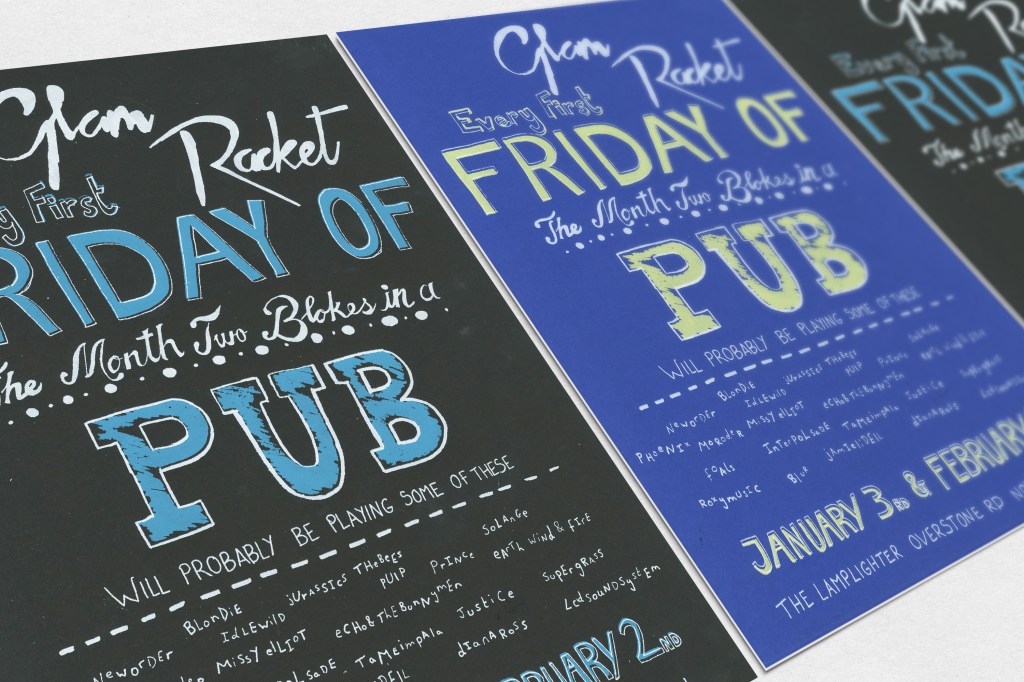 Glam
Rocket
Every First
FRIDAY OF
The Month Two Blokes in a
PUB
WILL PROBABLY BE PLAYING SOME OF THESE
NEWORDER BLONDIE JURASSIC5 THEBEES SOLANGE
IDLEWILD PULP PRINCE EARTH WIND & FIRE
MISSY ELLIOT ECHO&THEBUNNYMEN
TAMEIMPALA JUSTICE SUPERGRASS
DIANAROSS LCDSOUNDSYSTEM
FEBRUARY 2ND
Glam
Rocket
Every First
FRIDAY OF
The Month Two Blokes in a
PUB
WILL PROBABLY BE PLAYING SOME OF THESE
NEWORDER BLONDIE JURASSIC5 THEBEES SOLANGE
IDLEWILD PULP PRINCE EARTH WIND & FIRE
PHOENIX MORODER MISSY ELLIOT ECHO&THEBUNNYMEN
FOALS INTERPOL SADE TAMEIMPALA JUSTICE
ROXYMUSIC BLUR JAMIELIDELL DIANAROSS
JANUARY 3RD & FEBRUARY
THE LAMPLIGHTER OVERSTONE RD
Glam
Every First
FRIDA
The Month